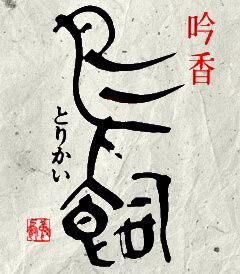 吟香
鳥飼
とりかい